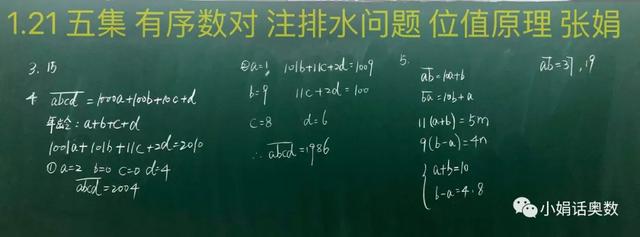 1.21 五集 有序数对 注排水问题 位值原理 张娟
3. 15
4. abcd=1000a+100b+10c+d
年龄: a+b+c+d
1001a+101b+11c+2d=2010
①a=2 b=0 c=0 d=4
abcd=2004
②a=1 101b+11c+2d=1009
b=9 11c+2d=100
c=8 d=6
∴abcd=1986
5.
ab=10a+b
ba=10b+a
11(a+b)=5m
9(b-a)=4n
a+b=10
b-a=4.8
ab=37,19
小娟话奥数